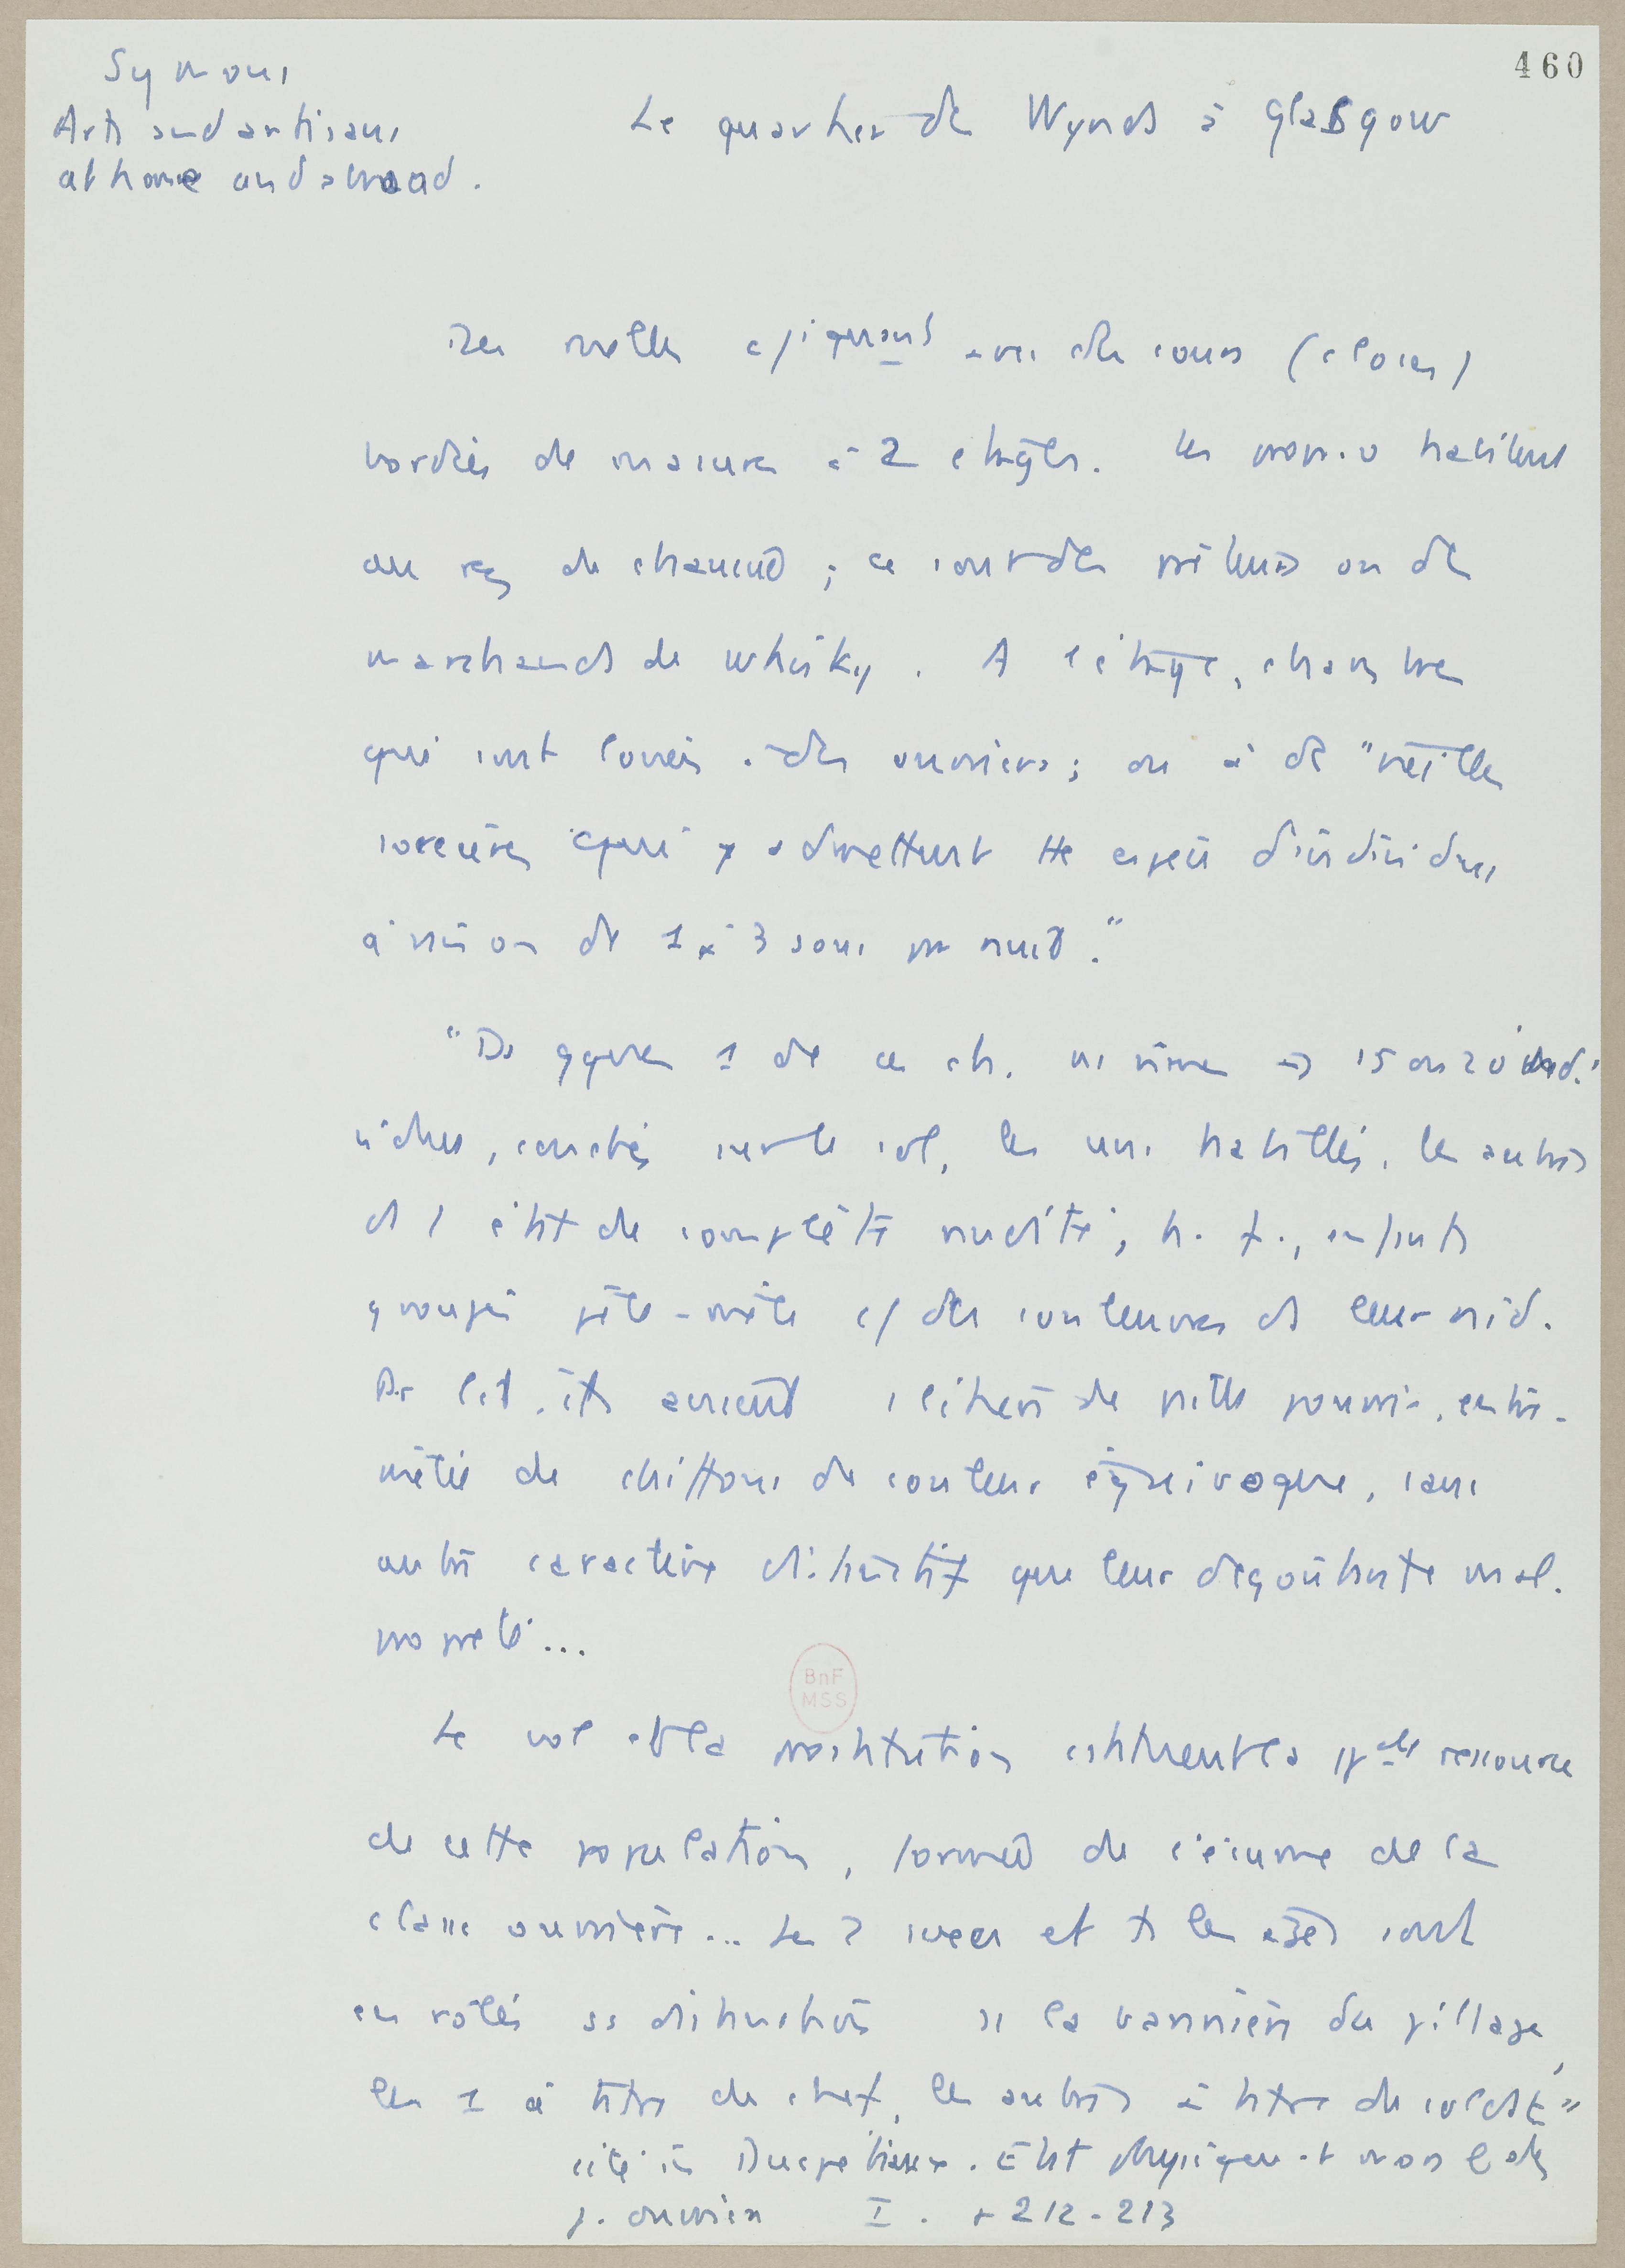 460
Symons
Arts and artisans
at home and abroad.
Le quartier des Wynds à Glasgow
Des ruelles avec des cours (closes)
bordées de masures à 2 étages. Les habitent
au rez de chaussée ; ce sont des ou des
marchands de whisky. A l'étage, chambres
qui sont louées à des ouvriers ; ou à de "vieilles
sorcières qui y admettent tte espèce d'individus
à raison de 1 à 3 sous par nuit."
"Ds qques 1 de ces ch. 15 ou 20 indi-
vidus, couchés sur le sol, les uns habillés, les autres
ds 1 état de complète nudité, h. f., enfants
groupés pêle-mêle c/ des couleuvres ds leur nid.
De lit, ils avaient 1 litière de paille pourrie, entre-
mêlée de chiffons de couleur équivoque, sans
autre caractère distinctif que leur dégoûtante mal-
propreté...
BnF
MSS
Le vol et la prostitution constituent la pale ressource
de cette population, formée de l'écume de la
classe ouvrière... Les 2 sexes et ts les âges sont
enrôlés ss distinction ss la bannière du pillage,
les 1 à titre de chef, les autres à titre de soldats"
cité in Ducpétiaux. Etat physique et moral des
j. ouvriers I. p 212-213